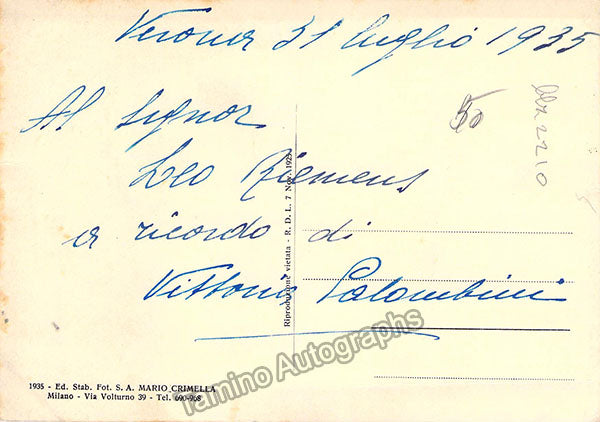 Verona 31 luglio 1935
Al signor
Leo Riemens
a ricordo di
Vittorio Palombini
50
Riproduzione vietata - R. D. L. 7 Nov. 1925
1935 - Ed. Stab. Fot. S. A. MARIO CRIMELLA
Milano - Via Volturno 39 - Tel. 690-968
Tamino Autographs